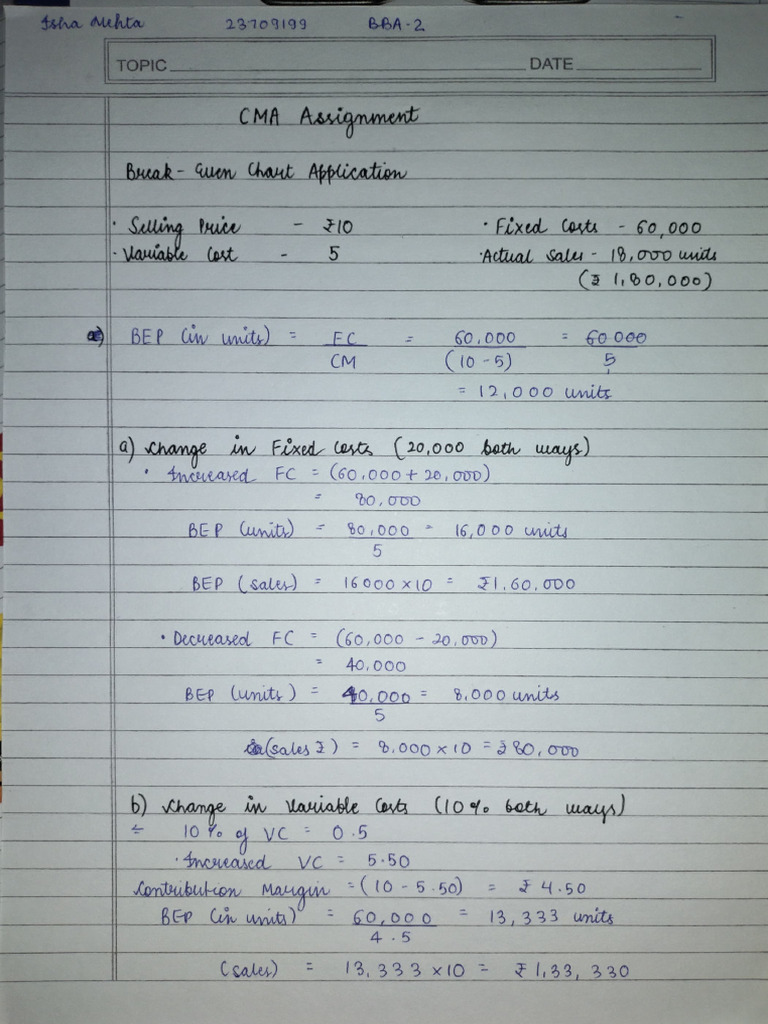 Isha Mehta 23709199 BBA-2
TOPIC DATE
CMA Assignment
Break-Even Chart Application
· Selling Price - ₹10 · Fixed Costs - 60,000
· Variable Cost - 5 · Actual Sales - 18,000 units
(₹ 1,80,000)
BEP (in units) = FC = 60,000 = 60 000
CM (10-5) 5
= 12,000 units
a) Change in Fixed Costs (20,000 both ways)
· Increased FC = (60,000 + 20,000)
= 80,000
BEP (units) = 80,000 = 16,000 units
5
BEP (sales) = 16000 × 10 = ₹1,60,000
· Decreased FC = (60,000 - 20,000)
= 40,000
BEP (units) = 40,000 = 8,000 units
5
(sales ₹) = 8,000 × 10 = ₹80,000
b) Change in Variable Costs (10% both ways)
÷ 10% of VC = 0.5
· Increased VC = 5.50
Contribution Margin = (10 - 5.50) = ₹ 4.50
BEP (in units) = 60,000 = 13,333 units
4.5
(sales) = 13,333 × 10 = ₹1,33,330